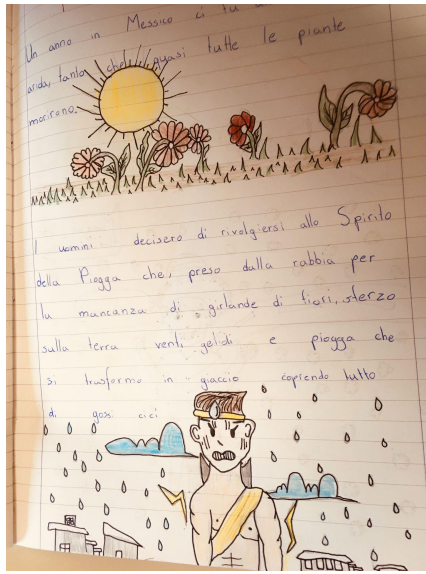 Un anno in Messico ci fu
arida, tanto che quasi tutte le piante
morirono.
I uomini decisero di rivolgiersi allo Spirito
della Piogga che, preso dalla rabbia per
la mancanza di girlande di fiori, sferzo
sulla terra venti gelidi e piogga che
si trasformo in giaccio coprendo tutto
di